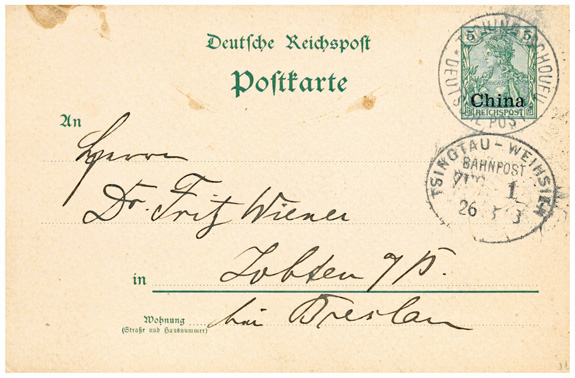 Deutsche Reichspost
Postkarte
5 5
China
REICHSPOST
DEUTSCHE POST
TSINGTAU - WEIHSIEN
BAHNPOST
ZUG 1
26
An
Herrn
Dr. Fritz Wiener
in Zobten a/B.
Wohnung
(Straße und Hausnummer)
bei Breslau